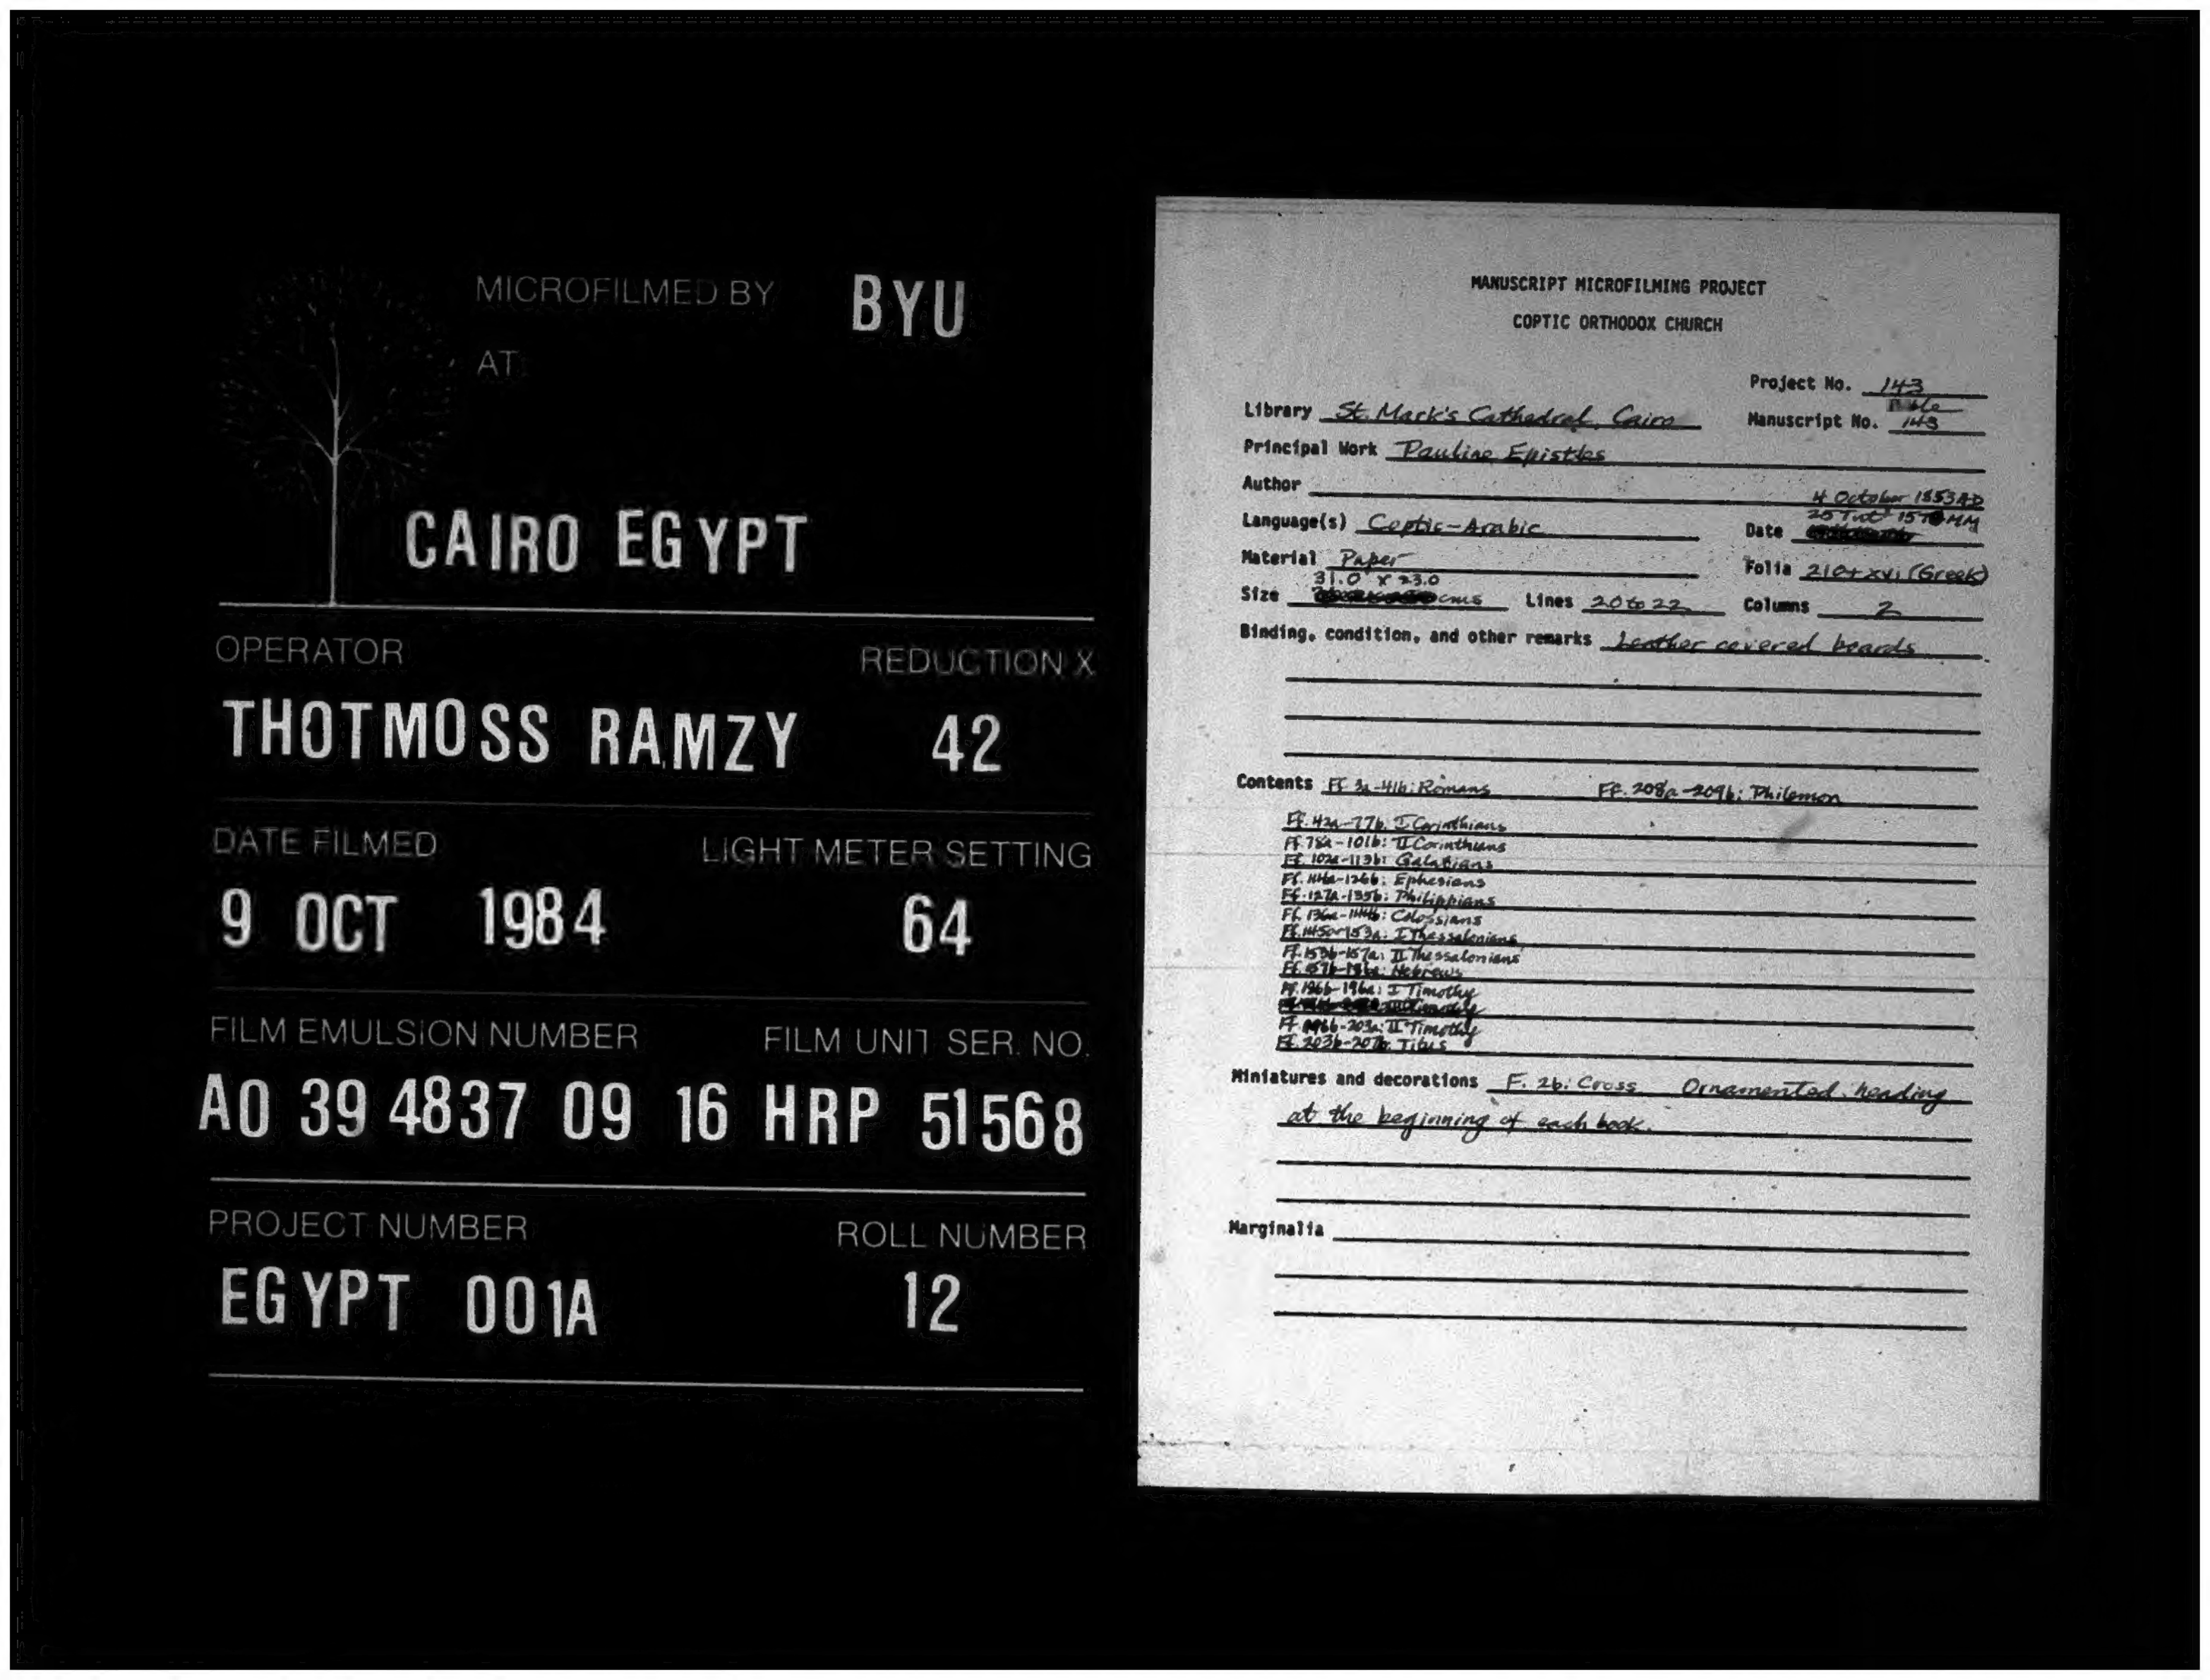 MICROFILMED BY BYU
AT
CAIRO EGYPT
OPERATOR REDUCTION X
THOTMOSS RAMZY 42
DATE FILMED LIGHT METER SETTING
9 OCT 1984 64
FILM EMULSION NUMBER FILM UNIT SER. NO.
A0 39 4837 09 16 HRP 51568
PROJECT NUMBER ROLL NUMBER
EGYPT 001A 12
MANUSCRIPT MICROFILMING PROJECT
COPTIC ORTHODOX CHURCH
Project No. 143
Library St. Mark's Cathedral, Cairo Manuscript No. 143
Principal Work Pauline Epistles
Author
4 October 1853 AD
Language(s) Coptic-Arabic Date
Material Paper Folia 210+xvi (Greek)
31.0 x 23.0
Size cms Lines 20 to 22 Columns 2
Binding, condition, and other remarks Leather covered boards
Contents Ff. 3a-41b: Romans Ff. 208a-209b: Philemon
Ff. 42a-77b: I Corinthians
Ff. 78a-101b: II Corinthians
Ff. 102a-113b: Galatians
Ff. 114a-126b: Ephesians
Ff. 127a-135b: Philippians
Ff. 136a-144b: Colossians
Ff. 145a-153a: I Thessalonians
Ff. 153b-157a: II Thessalonians
Hebrews
Ff. 186b-196a: I Timothy
Ff. 196b-203a: II Timothy
Ff. 203b-207b: Titus
Miniatures and decorations F. 2b: Cross Ornamented heading
at the beginning of each book.
Marginalia